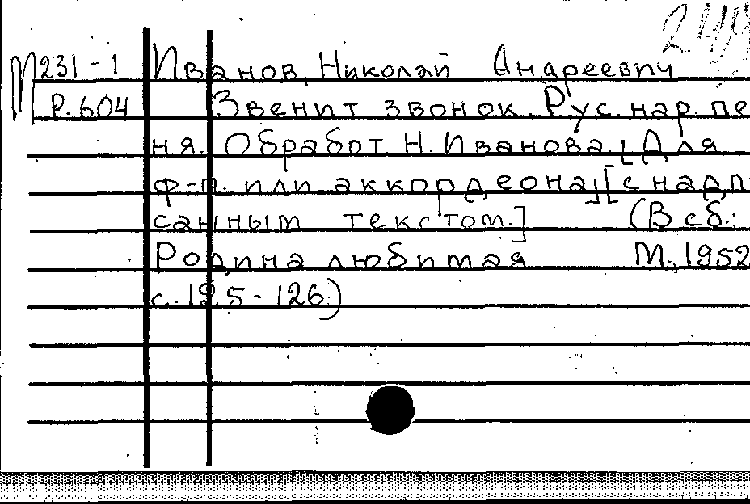 М231-1 Иванов, Николай Андреевич
Р.604 Звенит звонок. Рус. нар. пе
ня. Обработ Н. Иванова. [Для
ф-п. или аккордеона] [с надп
санным текстом.] (В сб:
Родина любимая М., 1952
с. 125-126.)